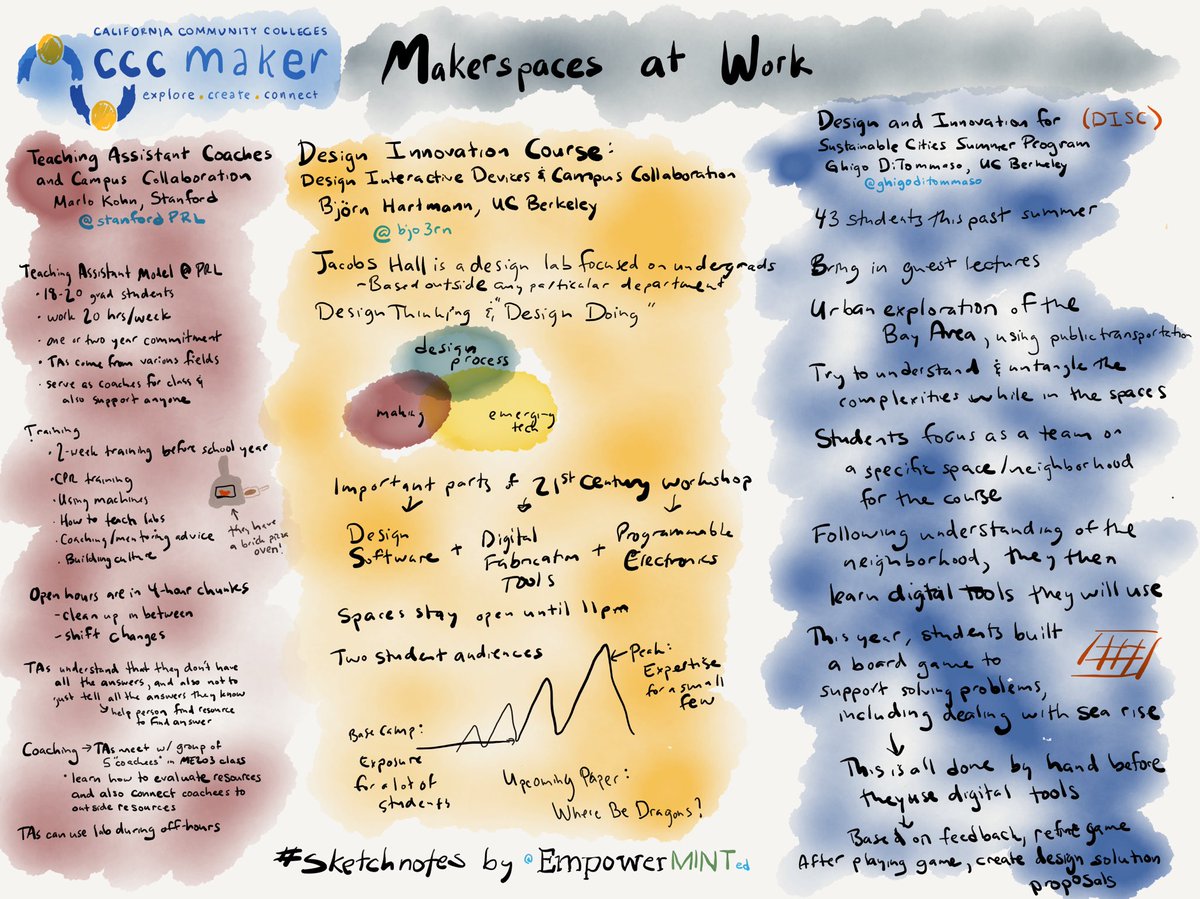 CALIFORNIA COMMUNITY COLLEGES
ccc maker
explore . create . connect
Makerspaces at Work
Teaching Assistant Coaches
and Campus Collaboration
Marlo Kohn, Stanford
@stanfordPRL
Teaching Assistant Model @ PRL
• 18-20 grad students
• work 20 hrs/week
• one or two year commitment
• TAs come from various fields
• serve as coaches for class &
also support anyone
Training
• 2-week training before school year
• CPR training
• Using machines
• How to teach labs
• Coaching/mentoring advice
• Building culture
they have
a brick pizza
oven!
Open hours are in 4-hour chunks
- clean up in between
- shift changes
TAs understand that they don't have
all the answers, and also not to
just tell all the answers they know
help person find resource
to find answer
Coaching → TAs meet w/ group of
5 "coachees" in ME203 class
• learn how to evaluate resources
and also connect coachees to
outside resources
TAs can use lab during off-hours
Design Innovation Course:
Design Interactive Devices & Campus Collaboration
Björn Hartmann, UC Berkeley
@bjo3rn
Jacobs Hall is a design lab focused on undergrads
- Based outside any particular department
"Design Thinking & "Design Doing"
design
process
making
emerging
tech
Important parts of 21st Century workshop
Design
Software + Digital
Fabrication
Tools + Programmable
Electronics
Spaces stay open until 11pm
Two student audiences
Peak:
Expertise
for a small
few
Base Camp:
Exposure
for a lot of
students
Upcoming Paper:
Where Be Dragons?
Design and Innovation for (DISC)
Sustainable Cities Summer Program
Ghigo DiTommaso, UC Berkeley
@ghigoditommaso
43 students this past summer
Bring in guest lectures
Urban exploration of the
Bay Area, using public transportation
Try to understand & untangle the
complexities while in the spaces
Students focus as a team on
a specific space/neighborhood
for the course
Following understanding of the
neighborhood, they then
learn digital tools they will use
This year, students built
a board game to
support solving problems,
including dealing with sea rise
This is all done by hand before
they use digital tools
Based on feedback, refine game
After playing game, create design solution
proposals
#sketchnotes by @EmpowerMINTed